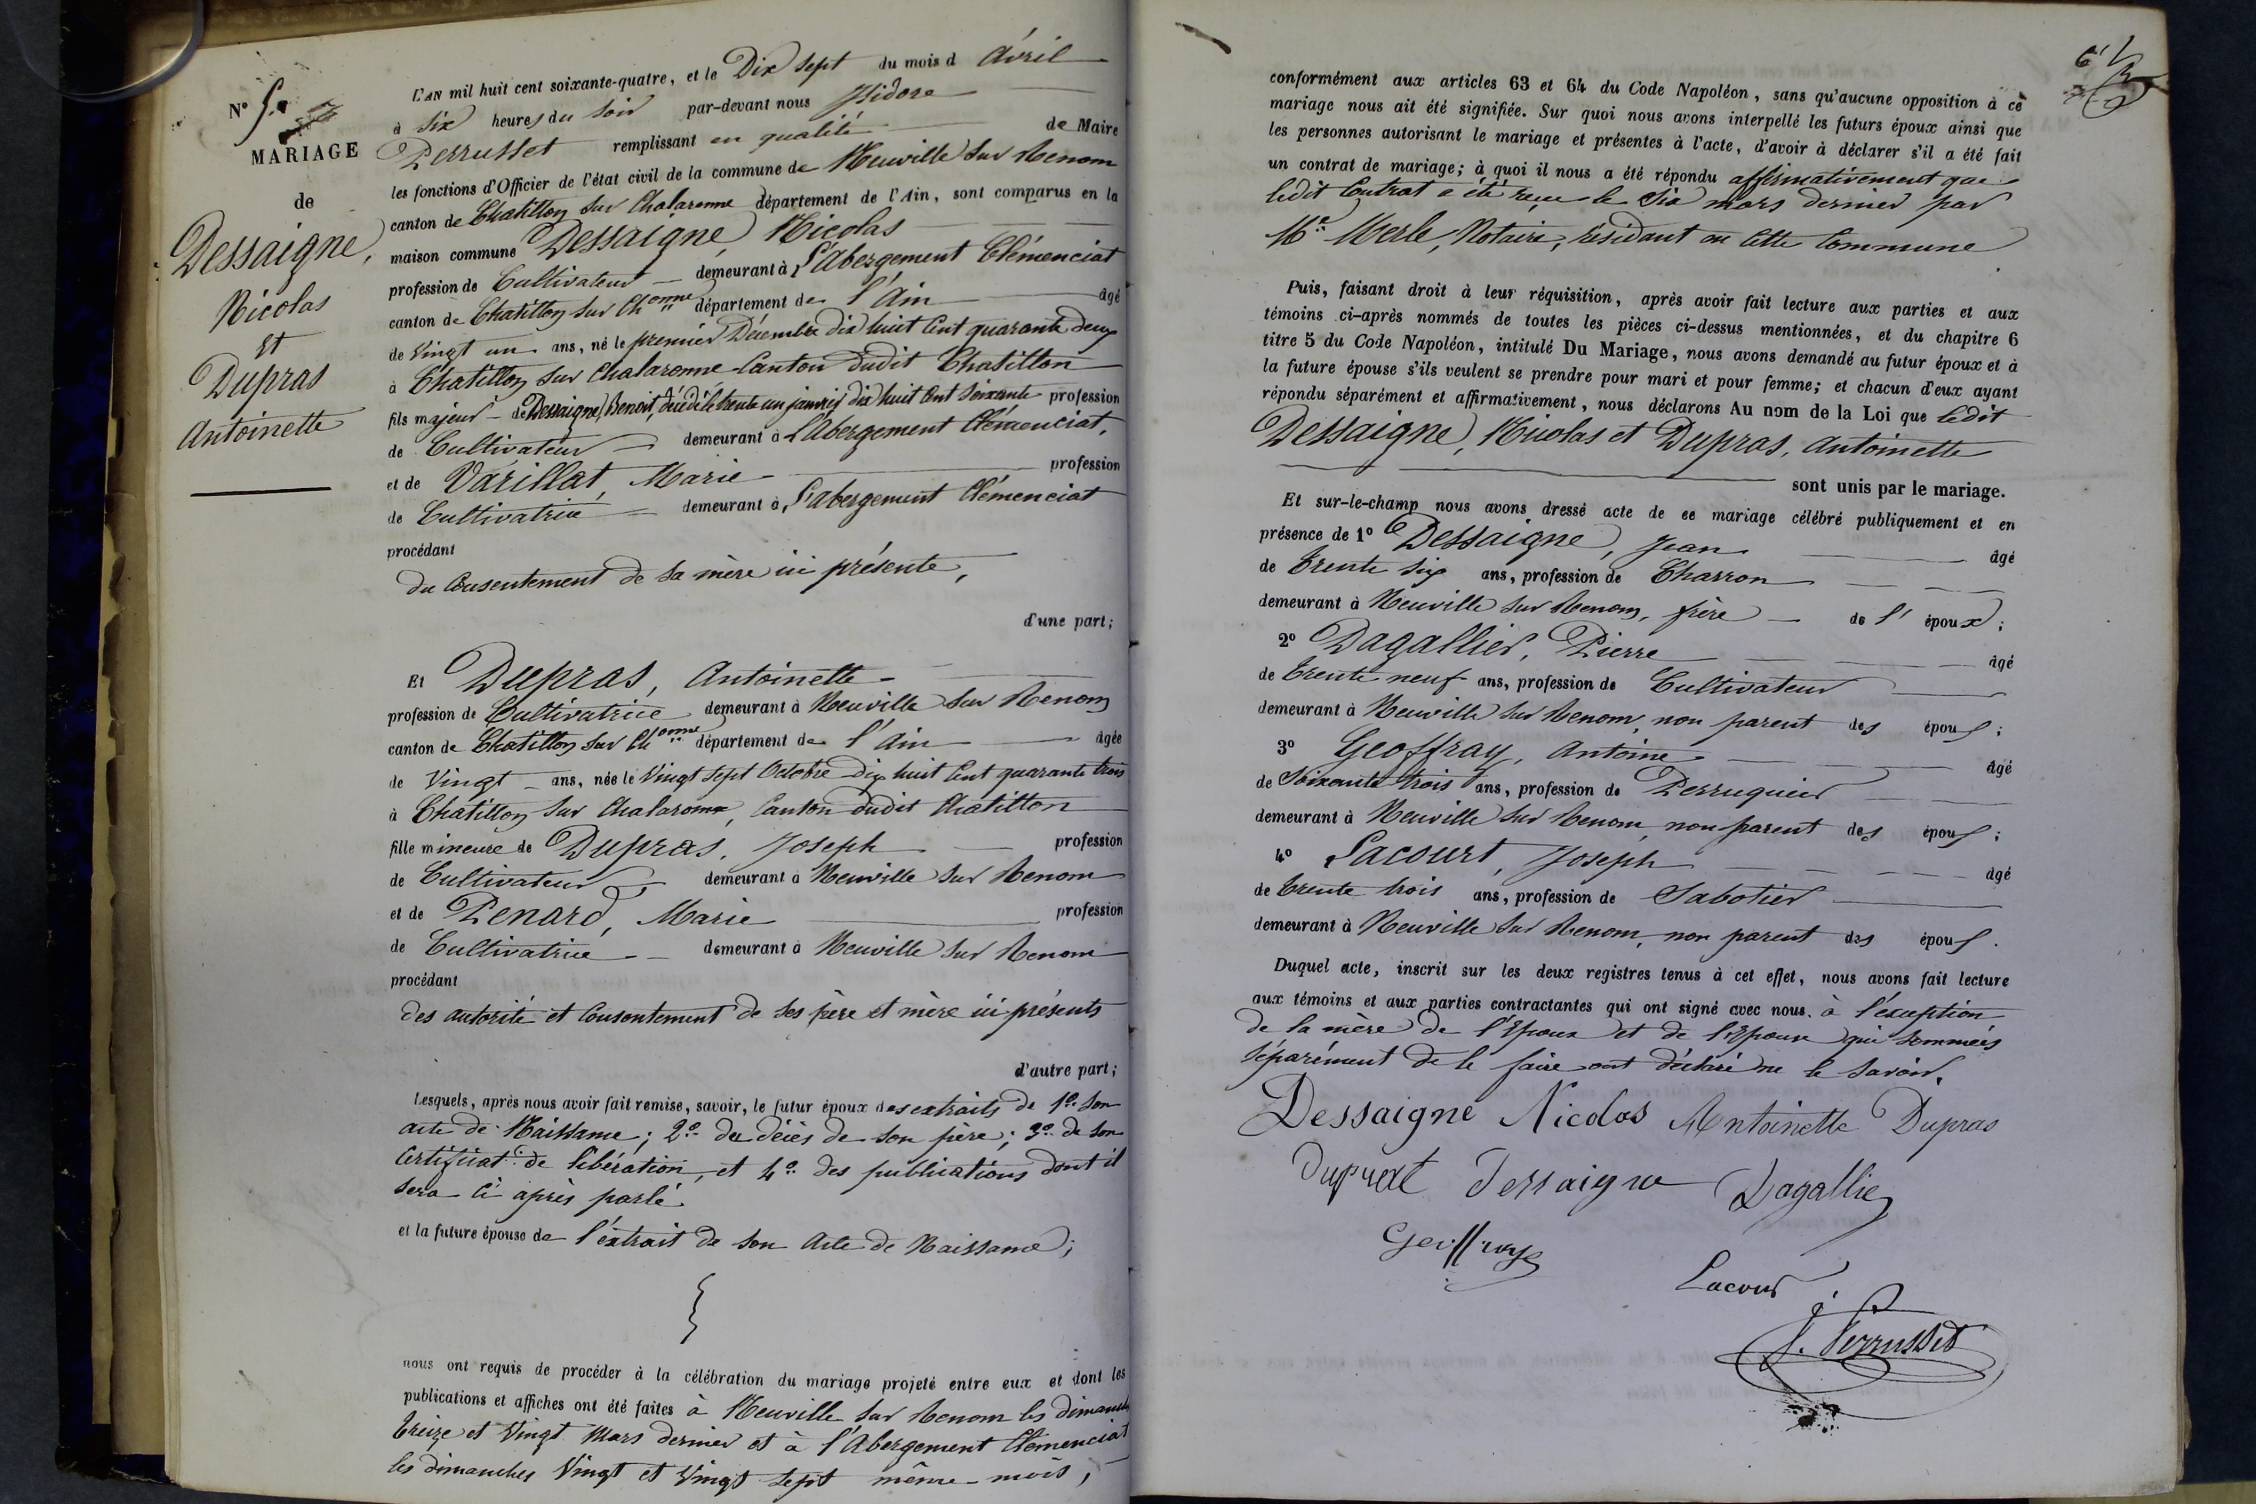 N° 5.
MARIAGE
de
Dessaigne,
Nicolas
et
Dupras
Antoinette
L'AN mil huit cent soixante-quatre, et le Dix sept du mois d Avril
à six heures du soir par-devant nous Isidore
Perrusset remplissant en qualité de Maire
les fonctions d'Officier de l'état civil de la commune de Neuville sur Renom
canton de Chatillon sur Chalaronne département de l'Ain, sont comparus en la
maison commune Dessaigne, Nicolas
profession de Cultivateur demeurant à L'Abergement Clémenciat
canton de Chatillon sur Chonne département de l'Ain âgé
de Vingt un ans, né le premier Décembre dix huit Cent quarante deux
à Chatillon sur Chalaronne Canton dudit Chatillon
fils majeur de Dessaigne, Benoit, décédé le trente un janvier dix huit Cent Soixante profession
de Cultivateur demeurant à L'Abergement Clémenciat,
et de Varillat, Marie profession
de Cultivatrice demeurant à L'abergement Clémenciat
procédant
du Consentement de sa mère ici présente,
d'une part;
Et Dupras, Antoinette
profession de Cultivatrice demeurant à Neuville sur Renom
canton de Chatillon sur Chonne département de l'Ain âgée
de Vingt ans, née le Vingt sept Octobre dix huit Cent quarante trois
à Chatillon sur Chalaronne, Canton dudit Chatillon
fille mineure de Dupras, Joseph profession
de Cultivateur demeurant à Neuville sur Renom
et de Penard, Marie profession
de Cultivatrice demeurant à Neuville sur Renom
procédant
des autorité et Consentement de ses père et mère ici présents
d'autre part;
Lesquels, après nous avoir fait remise, savoir, le futur époux des extraits de 1° son
acte de Naissance; 2° du décès de son père; 3° de son
Certificat de libération, et 4° des publications dont il
sera ci après parlé
et la future épouse de l'extrait de son Acte de Naissance;
nous ont requis de procéder à la célébration du mariage projeté entre eux et dont les
publications et affiches ont été faites à Neuville sur Renom les dimanches
treize et Vingt Mars dernier et à l'Abergement Clémenciat
les dimanches Vingt et Vingt sept même mois,
conformément aux articles 63 et 64 du Code Napoléon, sans qu'aucune opposition à ce
mariage nous ait été signifiée. Sur quoi nous avons interpellé les futurs époux ainsi que
les personnes autorisant le mariage et présentes à l'acte, d'avoir à déclarer s'il a été fait
un contrat de mariage; à quoi il nous a été répondu affirmativement que
ledit Contrat a été reçu le Six mars dernier par
Me Merle, Notaire, résidant en Cette Commune
Puis, faisant droit à leur réquisition, après avoir fait lecture aux parties et aux
témoins ci-après nommés de toutes les pièces ci-dessus mentionnées, et du chapitre 6
titre 5 du Code Napoléon, intitulé Du Mariage, nous avons demandé au futur époux et à
la future épouse s'ils veulent se prendre pour mari et pour femme; et chacun d'eux ayant
répondu séparément et affirmativement, nous déclarons Au nom de la Loi que ledit
Dessaigne, Nicolas et Dupras, Antoinette
sont unis par le mariage.
Et sur-le-champ nous avons dressé acte de ce mariage célébré publiquement et en
présence de 1° Dessaigne, Jean âgé
de trente six ans, profession de Charron
demeurant à Neuville sur Renom, frère de l'époux;
2° Dagallier, Pierre âgé
de trente neuf ans, profession de Cultivateur
demeurant à Neuville sur Renom, non parent des époux;
3° Geoffray, Antoine âgé
de Soixante trois ans, profession de Perruquier
demeurant à Neuville sur Renom, non parent des époux;
4° Lacourt, Joseph âgé
de trente trois ans, profession de Sabotier
demeurant à Neuville sur Renom, non parent des époux.
Duquel acte, inscrit sur les deux registres tenus à cet effet, nous avons fait lecture
aux témoins et aux parties contractantes qui ont signé avec nous. à l'exception
de la mère de l'Epoux et de l'Epouse qui sommées
séparément de le faire ont déclaré ne le savoir.
Dessaigne Nicolas Antoinette Dupras
Dessaigne Dagallier
Geoffray
Lacour
J. Perrusset